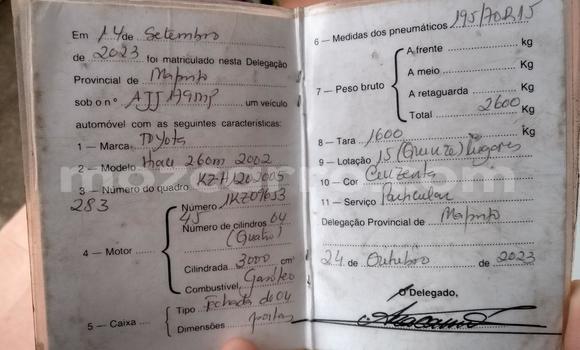 Em 14 de Setembro
de 2023 foi matriculado nesta Delegação
Provincial de Maputo
sob o nº AJJ 179MP um veículo
automóvel com as seguintes características:
1 — Marca TOYOTA
2 — Modelo Hiace 2002
3 — Número do quadro
283
4 — Motor
Número 1KZ09
45
Número de cilindros 04
(Quatro)
Cilindrada 3000 cm³
Combustível Gasóleo
5 — Caixa
Tipo Fechada de 04
Dimensões portas
6 — Medidas dos pneumáticos 195/70R15
7 — Peso bruto
A frente Kg
A meio Kg
A retaguarda Kg
Total 2600 Kg
8 — Tara 1600 Kg
9 — Lotação 15 (Quinze) lugares
10 — Cor Cinzenta
11 — Serviço Particular
Delegação Provincial de Maputo
24 de Outubro de 2023
O Delegado,